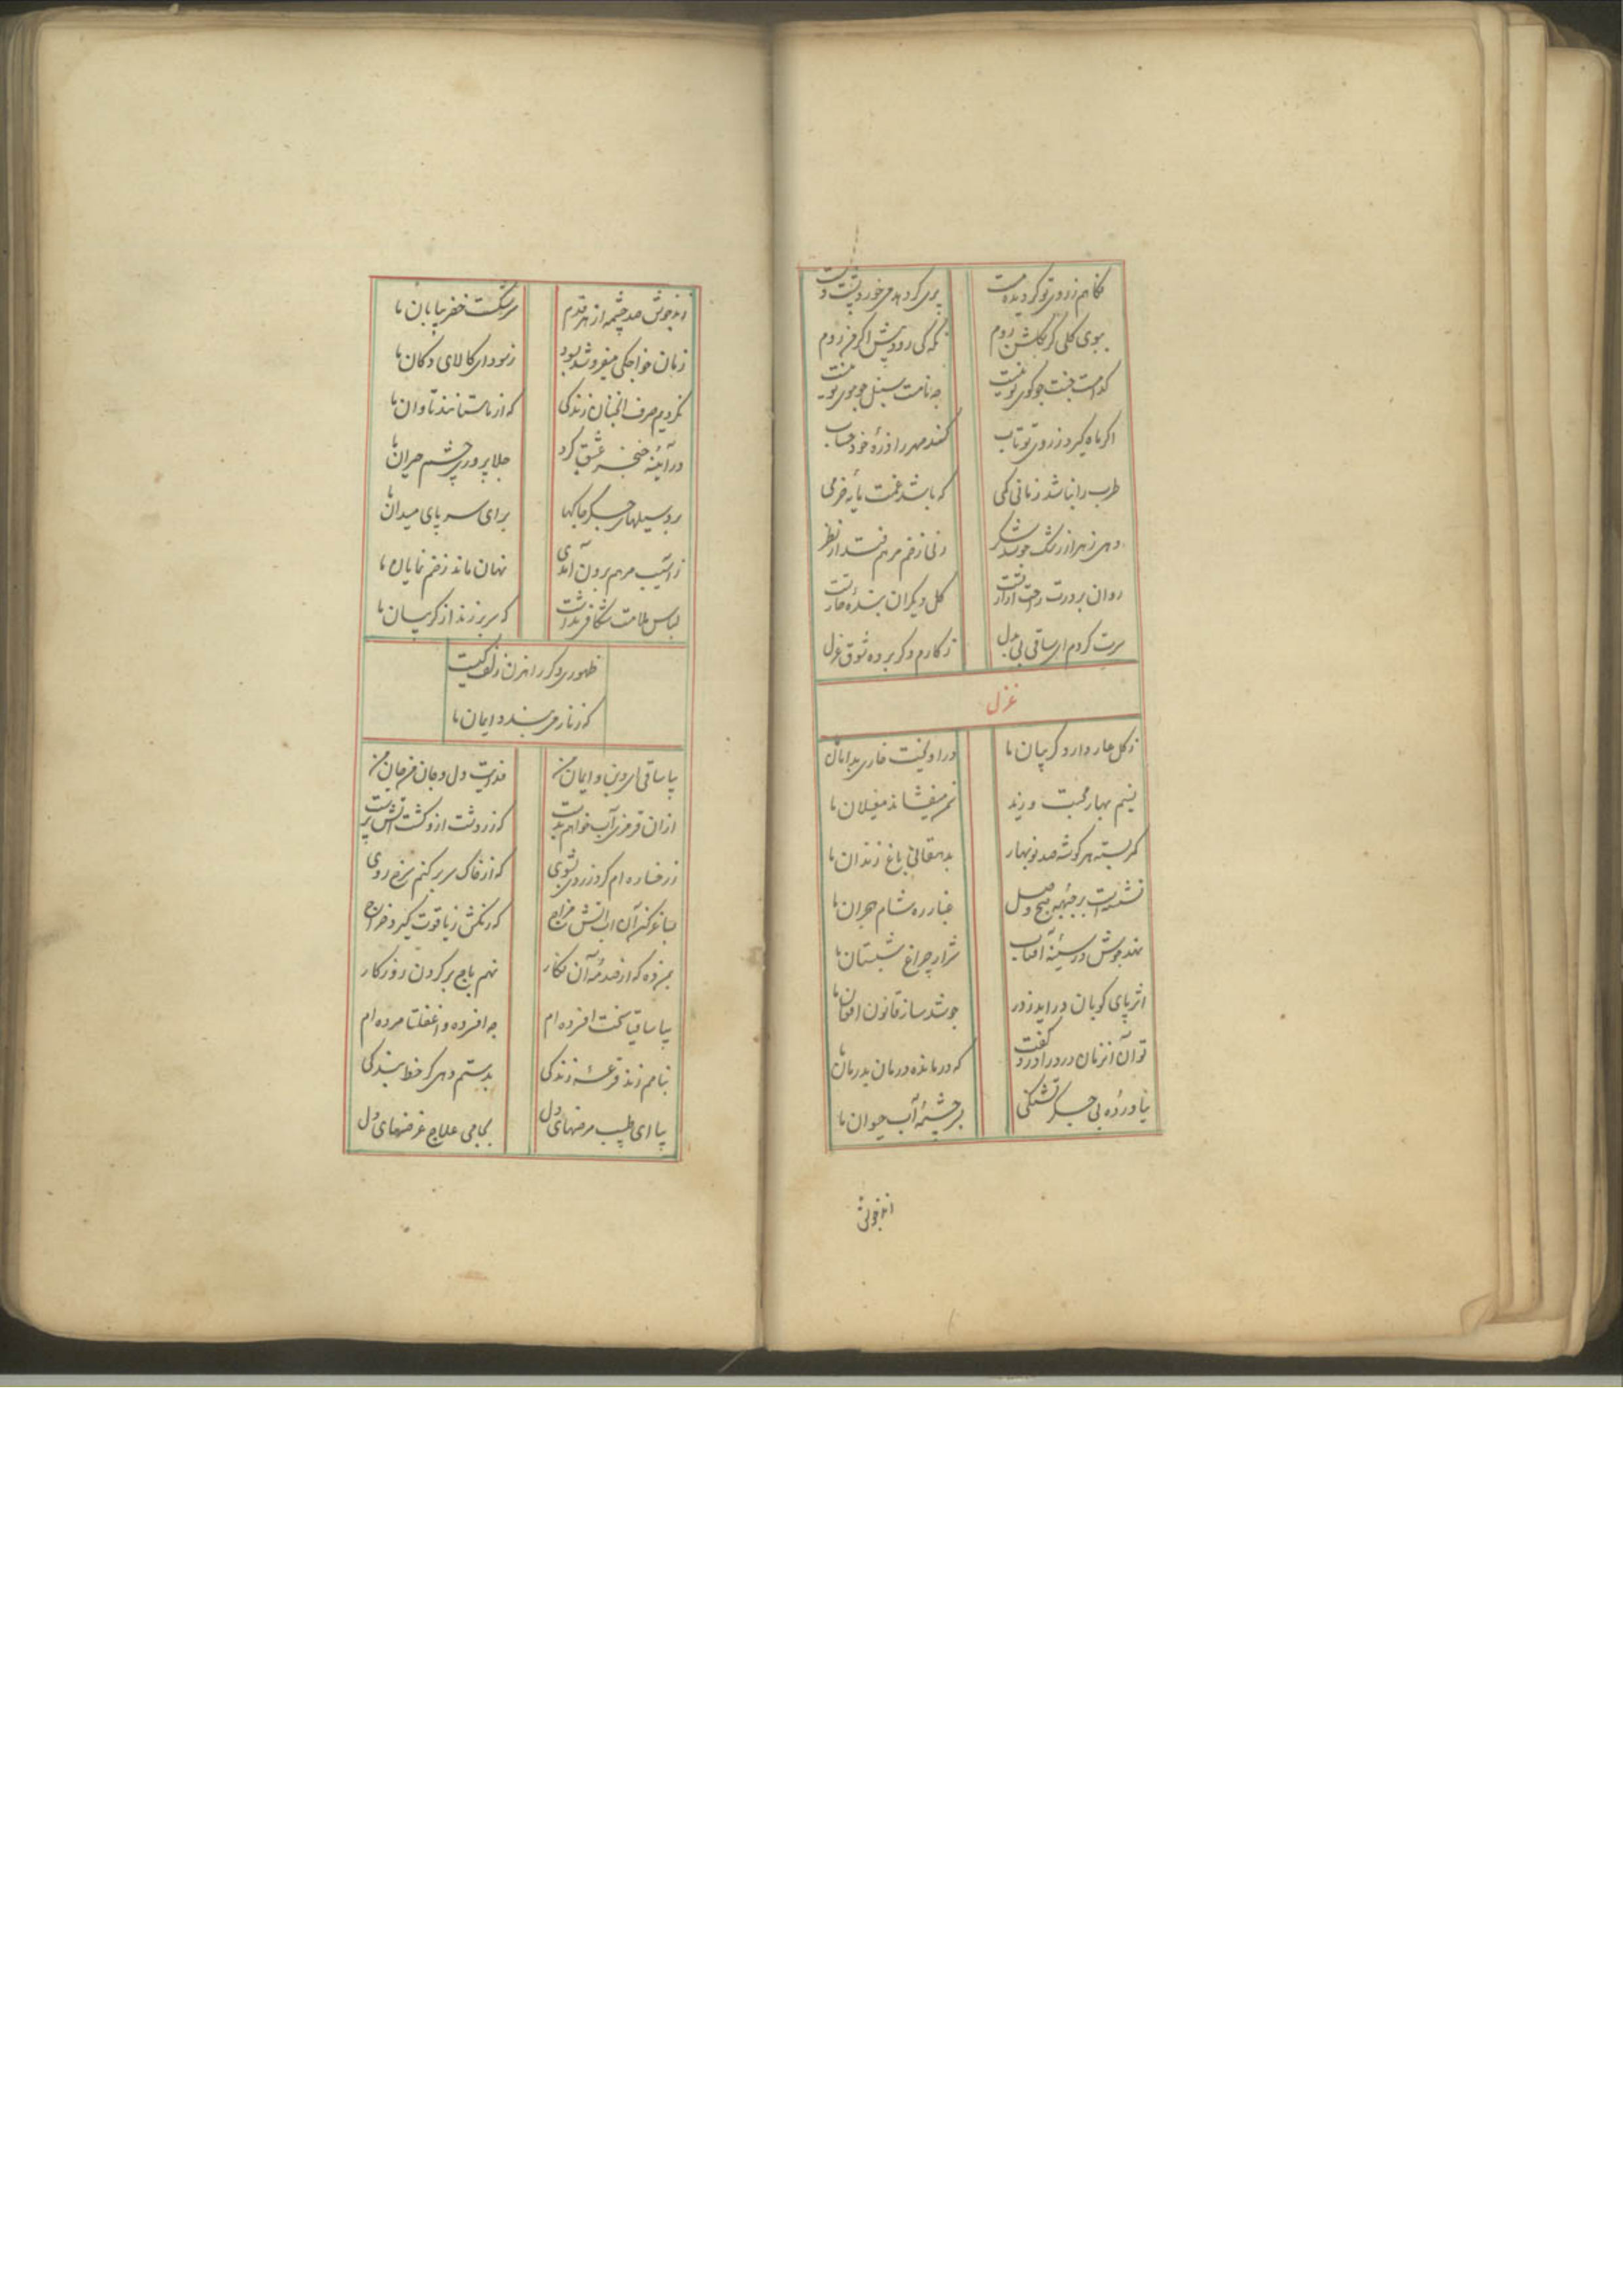 نگاهم ز روی تو گردیده مست
ببوی گلی گر بگلشن روم
نگه کی رود پیش اگر من روم
کدامست جنت چو کوی تو نیست
چه نامست سنبل چو موی تو نیست
اگر ماه گیرد ز روی تو تاب
کند مهر را ذرهٔ خود حساب
طرب را نباشد زمانی کمی
که باشد غمت مایهٔ خرمی
دهی زهر از رشک جوشد شکر
زنی زخم مرهم فتد از نظر
روان بر درت راحت
گل دیگران بندهٔ خار تست
سرت گردم ای ساقی بی بدل
ز کارم دگر برده شوق غزل
غزل
ز گل عار دارد گریبان ما
در آویخت خاری بدامان ما
نسیم بهار محبت وزید
نم میفشاند مغیلان ما
کمر بسته هر گوشه صد نوبهار
بدهقانی باغ زندان ما
نشسته است بر جبهه صبح وصل
غبار ره شام هجران ما
نهد جوش در سینهٔ آفتاب
شرار چراغ شبستان ما
اثر پای کوبان در آید ز در
چو شد ساز قانون افغان ما
توان آنزمان درد را درد گفت
که درمانده درمان بدرمان ما
نیاورده بی جگر تشنگی
بر چشمهٔ آب حیوان ما
زند جوش صد چشمه از هر قدم
سرشکست خضر بیابان ما
زیان خواجگی میفروشد بسود
ز سودای کالای دکان ما
نکردیم صرف آنچنان زندگی
که از ما ستانند تاوان ما
در آئینه خنجر عشق کرد
جلا پروری چشم حیران ما
برد سیلهای جگر چاکها
برای سر پای میدان ما
ز آسیب مرهم برون آمدی
نهان ماند زخم نمایان ما
لباس ملامت شکافی نداشت
که سر بر زند از گریبان ما
ظهوری دگر راهزن زلف کیست
که زنار می بندد ایمان ما
بیا ساقی ای دین و ایمان من
فدایت دل و جان من جان من
از آن قرمزی آب خواهم بدست
که زردشت ازو گشت آتش پرست
ز رخساره ام گرد زردی بشوی
که از خاک سر بر کنم سرخ روی
بساغر کن آن آب آتش مزاج
که رنگش ز یاقوت گیرد خراج
بمن ده که از صدمهٔ آن نگار
نهم باج بر گردن روزگار
بیا ساقیا سخت افسرده ام
چه افسرده واغفلتا مرده ام
بنامم زند قرعهٔ زندگی
بدستم دهی گر خط بندگی
بیا ای طبیب مرضهای دل
بجامی علاج غرضهای دل
زند جوش